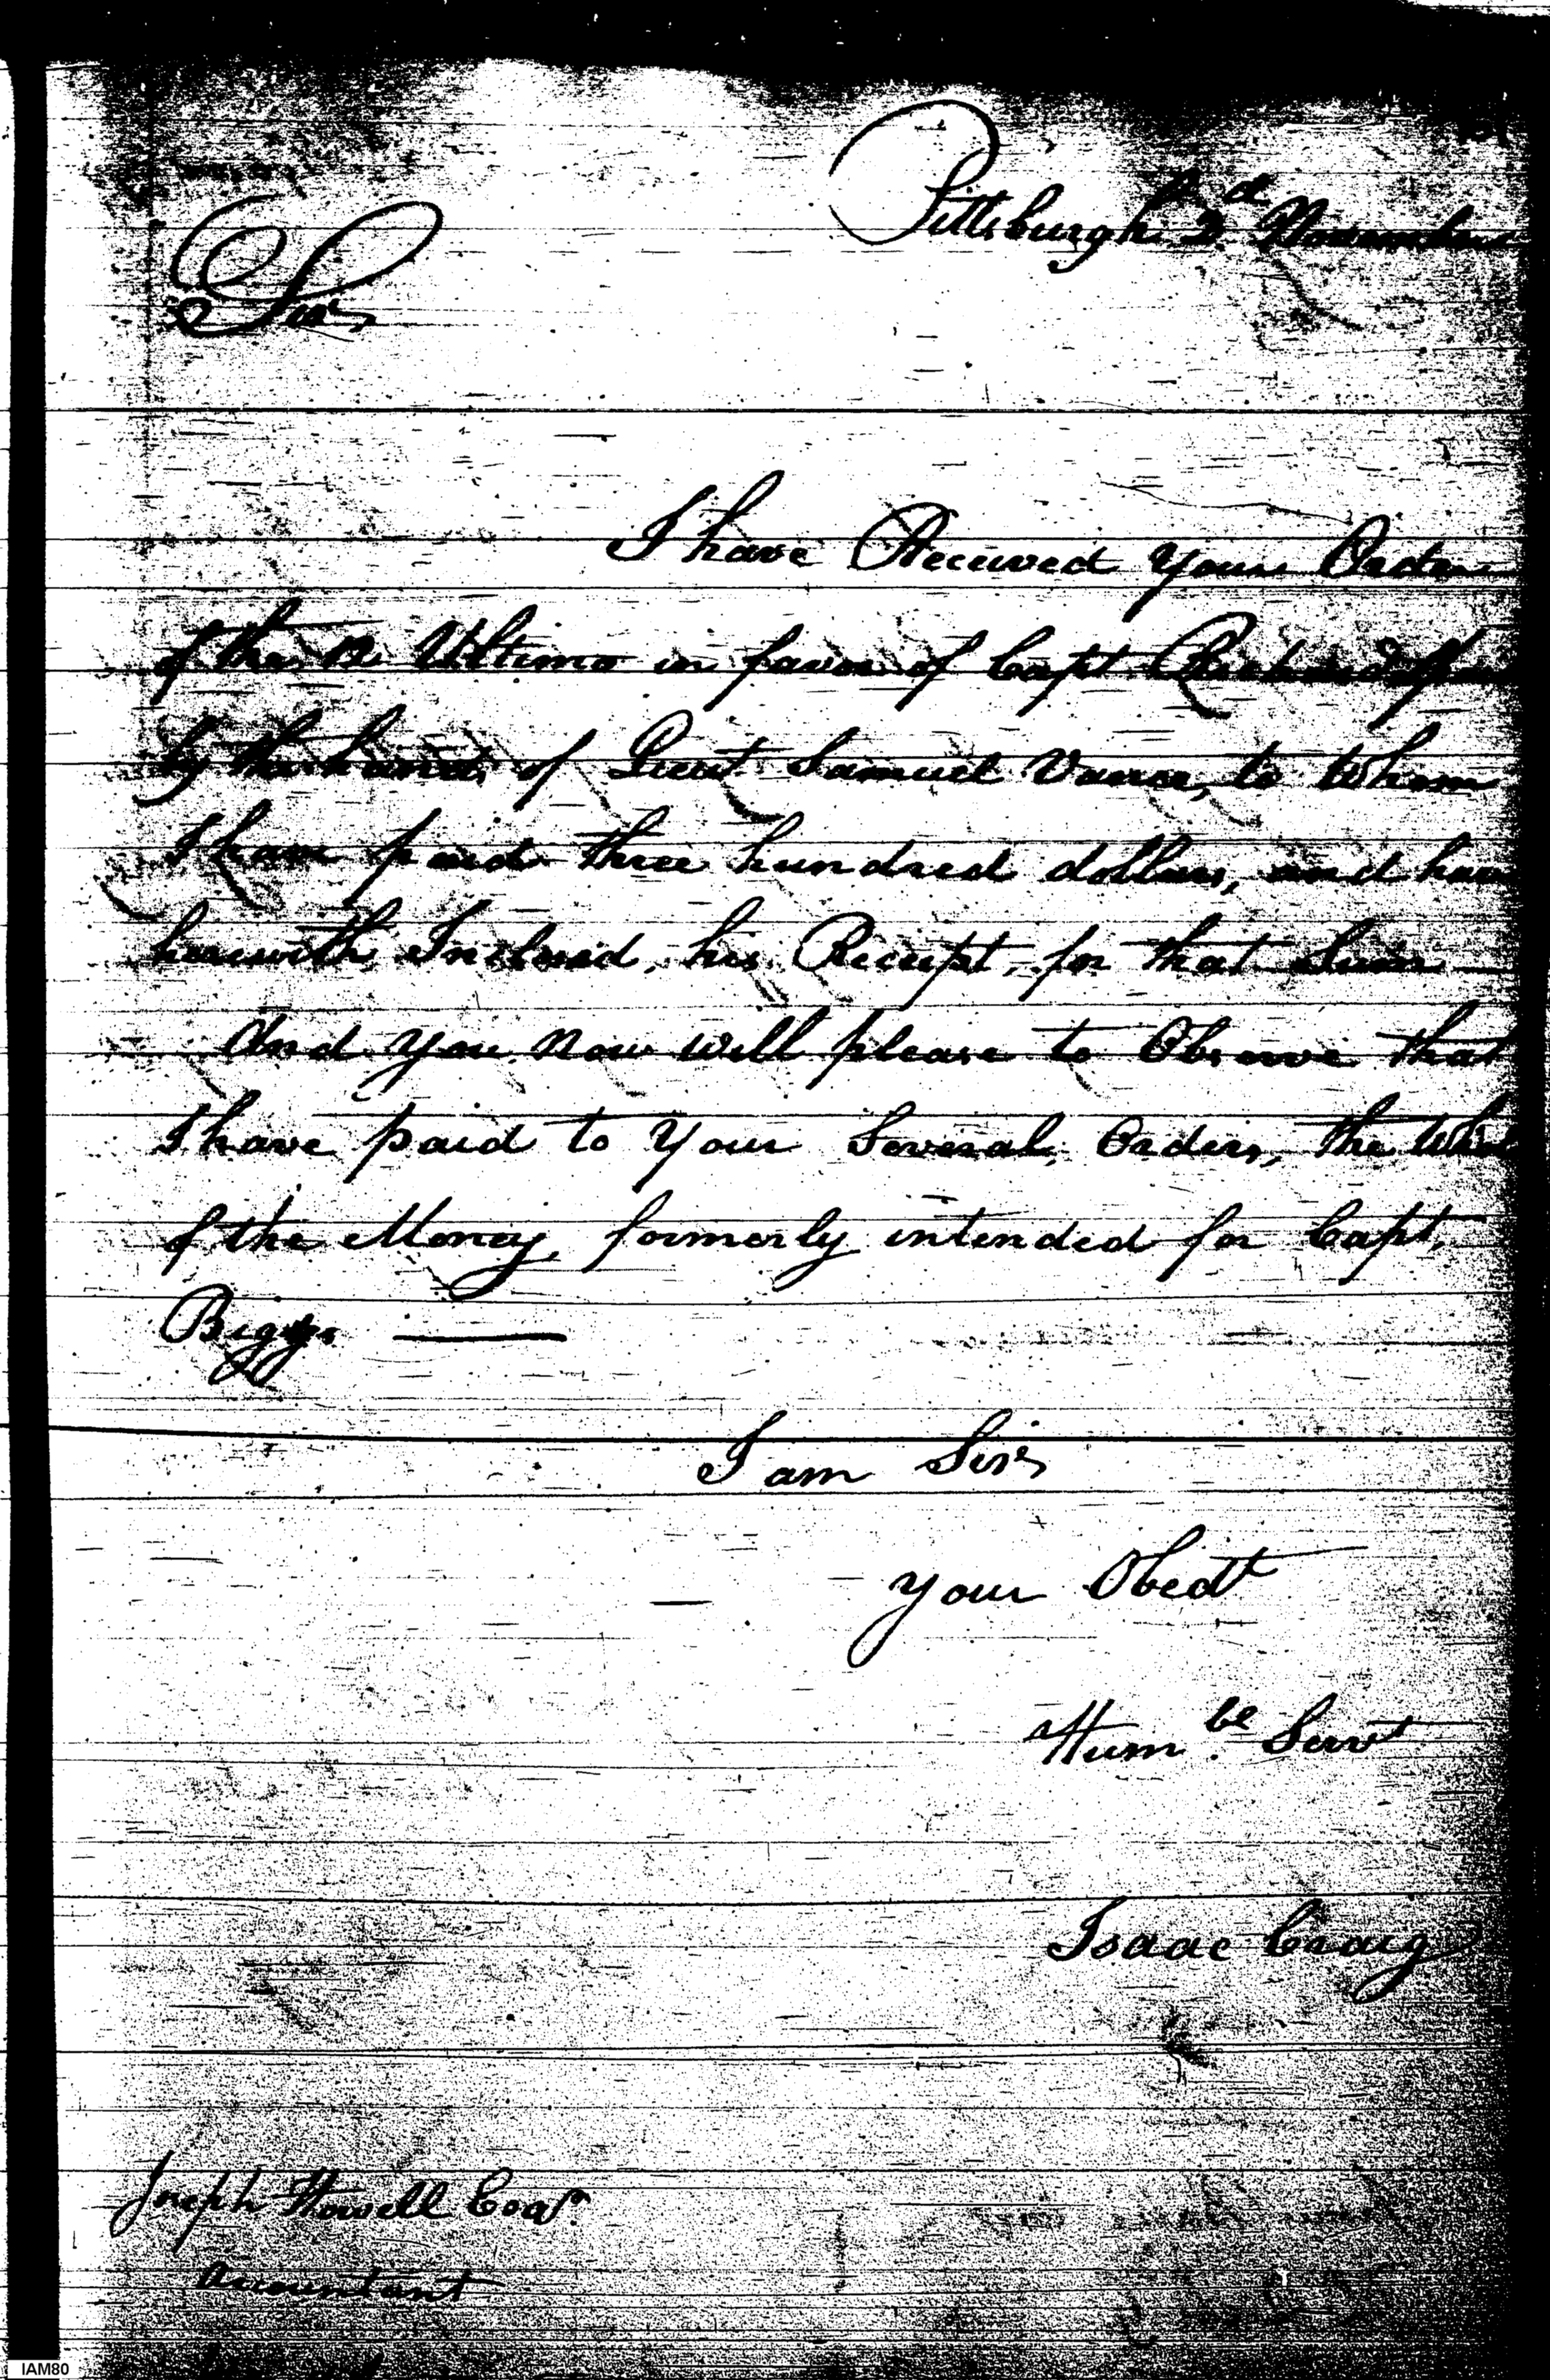 Pittsburgh 2d November
Sir,
I have Received your Order
of the 12 Ultimo in favor of Capt
by the hands of Lieut Samuel Vance, to Whom
I have paid three hundred dollars, and have
herewith Inclosed, his Receipt, for that Sum
And you now will please to Observe that
I have paid to your Several Orders, the Whole
of the Money, formerly intended for Capt.
Biggs
I am Sir,
your Obedt
Humbe Servt
Isaac Craig
Joseph Howell Esqr.
Accountant
IAM80